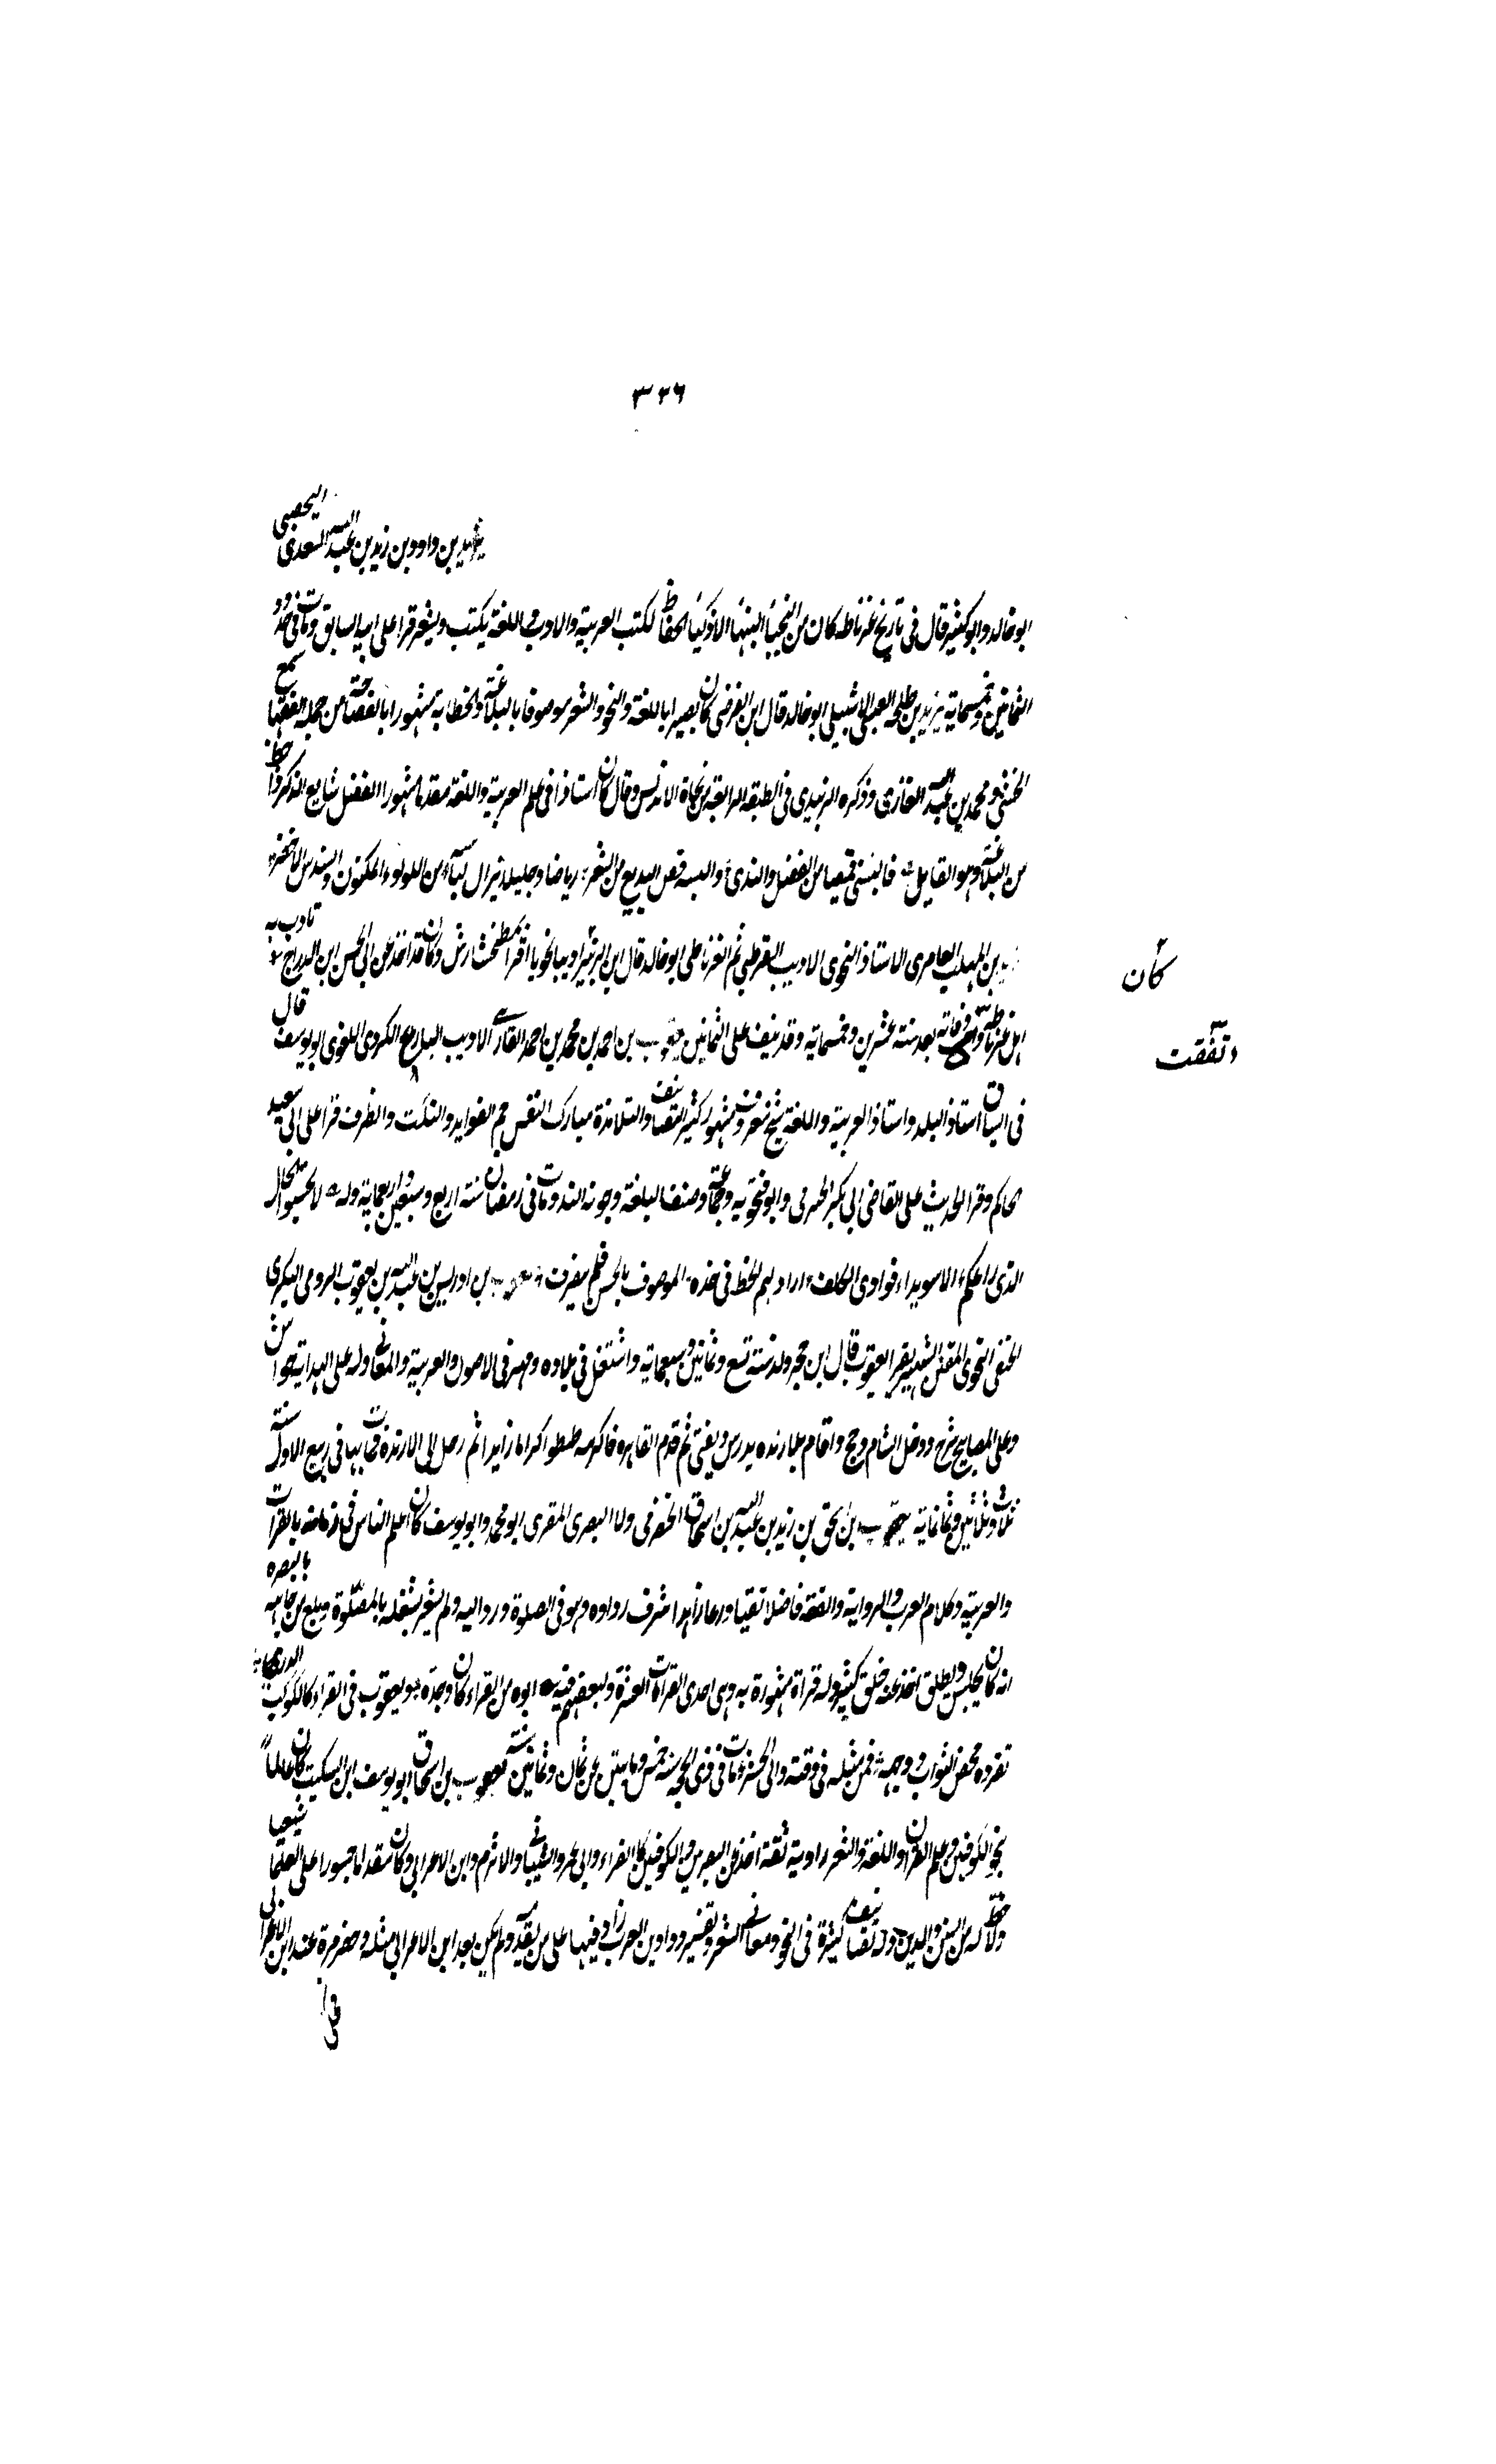 ٣٢٦
يزيد بن داود بن زيد بن عبد الله السعدى اليحصبى
ابو خالد وابو كثير قال فى تاريخ غرناطه كان من النجبأ النبهأ الاذكيأ الحفاظ لكتب العربية والادب واللغة يكتب ويشعر قرا على ابيه السابق ومات فى حدود
الثمانين وخمسماية يزيد بن طلحه العبسى الاشبيلى ابو خالد قال ابن الفرضى كان بصيرا باللغة والنحو والشعر موصوفا بالبلاغة والخطابة مشهورا بالفصاحة من جملة الفقها سمع
الخشنى ومحمد بن عبد الله الغازى وذكره الزبيدى فى الطبقه الرابعة من نحاة الاندلس وقال كان استاذا فى علم العربية واللغة مقدما مشهور الفضل شايع الذكر وافر حظ
من البلاغة وهو القايل فالبسنى قميصا من الفضل والندى والبسه قمص البديع من الشعر رياضا وحليا لا تزال من اللولوء المكنون والسندس الاخضر
بن المهلب العامرى الاستاذ النحوى الاديب القرطبى ثم الغرناطى ابو خالد قال ابن الزبير اديبا نحويا اقرأ وكان قد اخذ عن ابى الحسن ابن الدراج تادب به
كان
اهل غرناطه وفاته بعد سنة عشرين وخمسماية وقد نيف على الثمانين يعقوب بن احمد بن محمد بن احمد القارى الاديب البارع الكردى اللغوى ابو يوسف قال
واتفقت
فى السياق استاذ البلد واستاذ العربية واللغة شيخ معروف مشهور كثير التصانيف والتلامذة مبارك النفس جم الفوايد والنكت والطرف قرا على ابى سعيد
حاكم وقرا الحديث على القاضى ابى بكر الحيرى وابو فنجويه وجماعة وصنف البلغة وجونه الند ومات فى رمضان سنة اربع وسبعين واربعماية وله لا تحسبوا الخال
الذى راعكم الا سويداء فوادى الكلف اراد لثم الخط فى خده الموصوف بالحسن فلم ينصرف يعقوب بن ادريس بن عبد الله بن يعقوب الرومى النكرى
الحنفى النحوى المفنن الشهير بقرا يعقوب قال ابن حجر ولد سنة تسع وثمانين وسبعماية واشتغل فى بلاده ومهر فى الاصول والعربية والمعانى وله على الهداية حواش
وعلى المصابيح شرح ودخل الشام وحج واقام بلارنده يدرس ويفتى ثم قدم القاهره فاكرمه ططر اكراما زايدا ثم رحل الى لارندة فمات بها فى ربيع الاول سنة
ثلاث وثلاثين وثمانماية يعقوب بن اسحق بن زيد بن عبد الله بن اسحاق الحضرمى ولا البصرى المقرى ابو محمد وابو يوسف كان اعلم الناس فى زمانه بالقرات
والعربية وكلام العرب والرواية والفقه فاضلا تقيا ورعا زاهدا سرق رداوه وهو فى الصلوة ورد اليه ولم يشعر لشغله بالصلوة وبلغ من جاهه بالبصره
انه كان يحبس ويطلق اخذ عنه خلق كثير وله قراة مشهورة به وهى احدى القرات العشرة ولبعضهم فيه ابوه من القراء كان وجده ويعقوب فى القراء كالكوكب الدرى
تفرده محض الصواب ووجهه فمن مثله فى وقته والى الحشر مات فى ذى الحجه سنه خمس ومايتين عن ثمان وثمانين سنة يعقوب بن اسحاق ابو يوسف ابن السكيت كان عالماً
بنحو الكوفيين وعلم القرآن واللغة والشعر راوية ثقة اخذ عن البصريين والكوفيين كالفراء وابى عمرو الشيبانى والاثرم وابن الاعرابى وكان مقداما جسورا على العلما شيعيا
ولا حظ له من السنن والدين وله تصانيف كثيرة فى النحو ومعانى الشعر وتفسير دواوين العرب زاد فيها على من تقدمه ولم يكن بعد ابن الاعرابى مثله وحضر مرة عند ابن الاعرابى